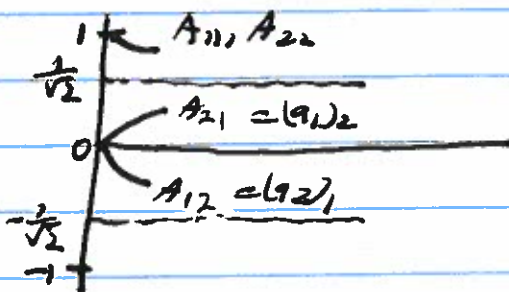 1 A₁₁, A₂₂
1/√2
A₂₁ = (a₁)₂
0
A₁₂ = (a₂)₁
-1/√2
-1